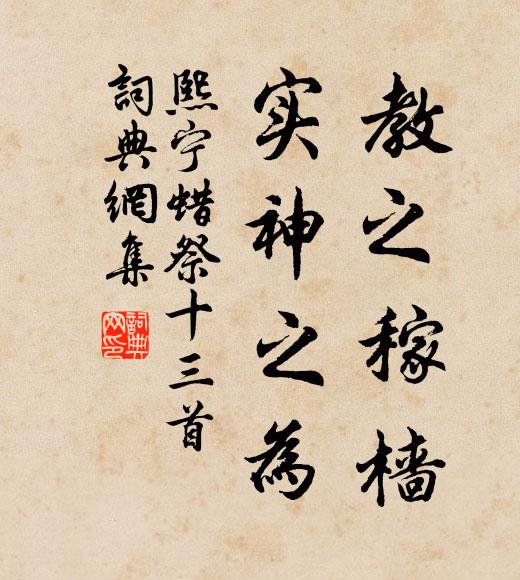 教之稼樯
实神之為
熙宁蜡祭十三首
詞典網集
詞典
网印